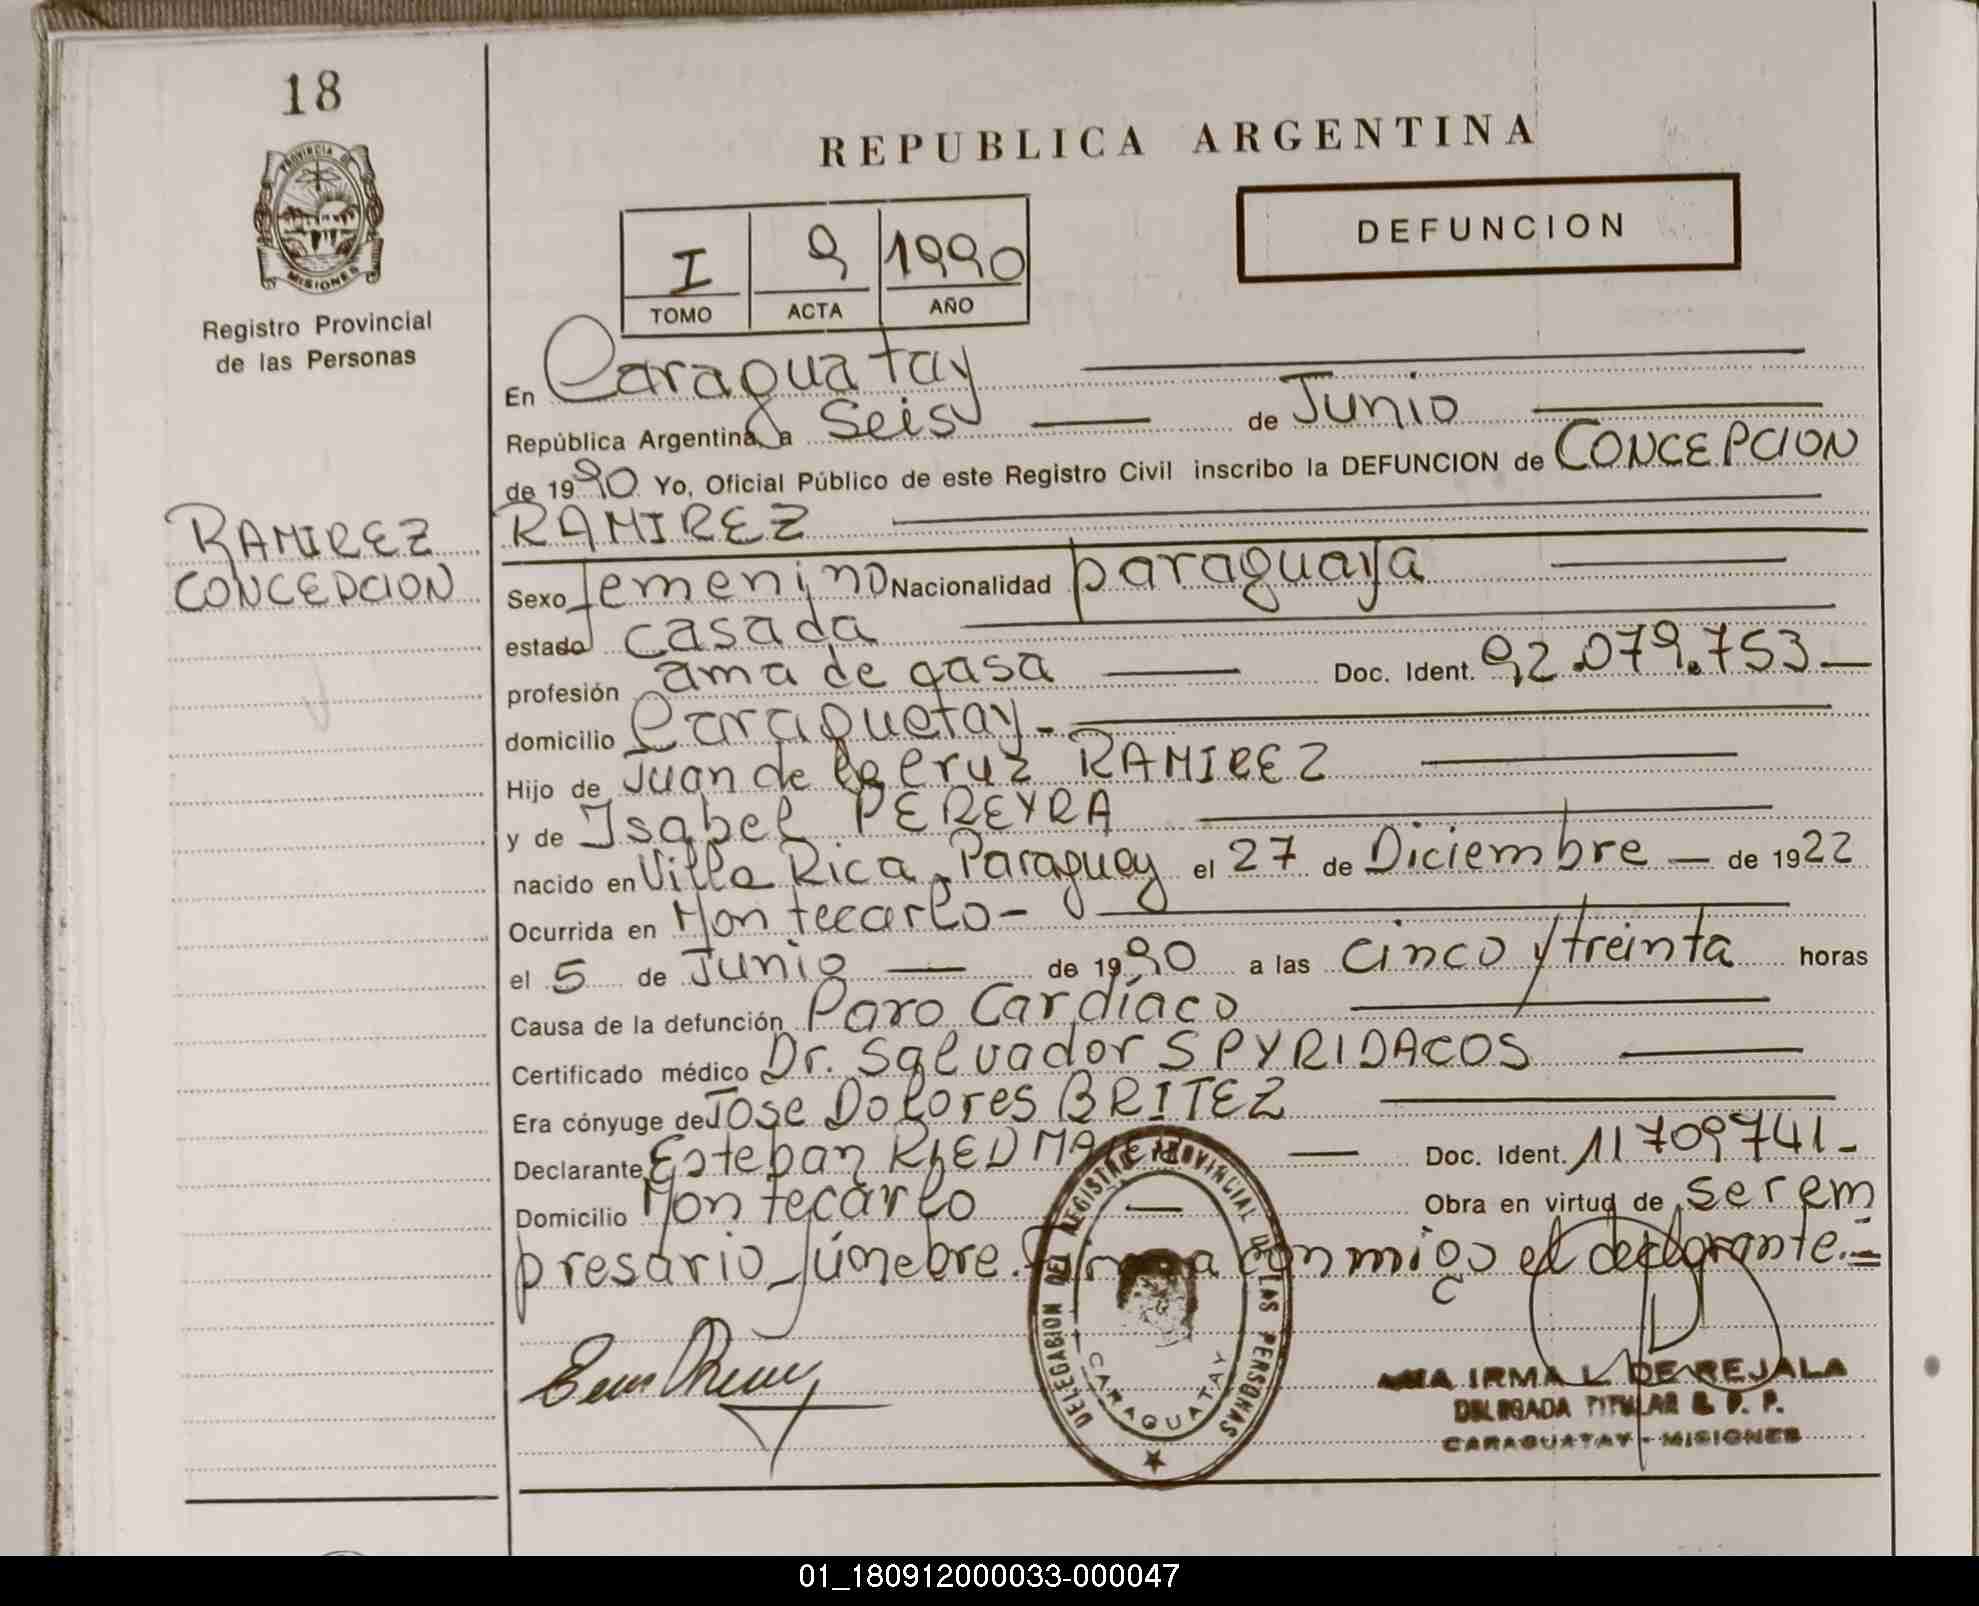 18
PROVINCIA DE
MISIONES
Registro Provincial
de las Personas
RAMIREZ
CONCEPCION
REPUBLICA ARGENTINA
DEFUNCION
I 9 1990
TOMO ACTA AÑO
En Caraguatay
República Argentina, a Seis de Junio
de 1990 Yo, Oficial Público de este Registro Civil inscribo la DEFUNCION de CONCEPCION
RAMIREZ
Sexo femenino Nacionalidad paraguaya
estado casada
profesión ama de casa Doc. Ident. 92.079.753
domicilio Caraguatay
Hijo de Juan de la Cruz RAMIREZ
y de Isabel PEREYRA
nacido en Villa Rica - Paraguay el 27 de Diciembre de 1922
Ocurrida en Montecarlo
el 5 de Junio de 1990 a las cinco y treinta horas
Causa de la defunción Paro Cardíaco
Certificado médico Dr. Salvador SPYRIDACOS
Era cónyuge de José Dolores BRITEZ
Declarante Esteban Doc. Ident. 11709741
Domicilio Montecarlo Obra en virtud de ser em
presario fúnebre. Firma conmigo el declarante.=
DELEGACION DEL REGISTRO PROVINCIAL DE LAS PERSONAS
CARAGUATAY
IRMA L. DE REJALA
DELEGADA TITULAR R. P. P.
CARAGUATAY - MISIONES
01_180912000033-000047